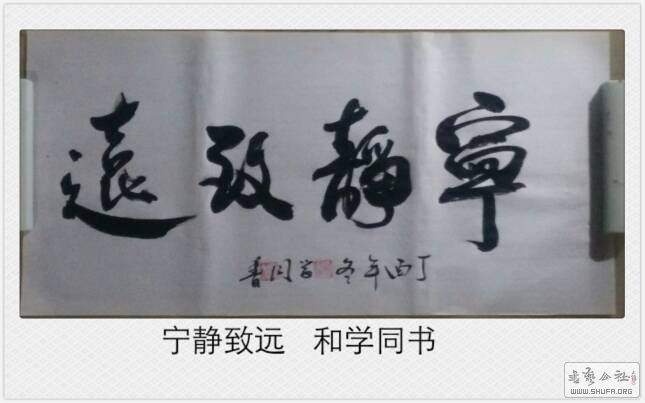 寧靜致遠
丁酉年冬 学同書
宁静致远 和学同书
书艺公社
WWW.SHUFA.ORG